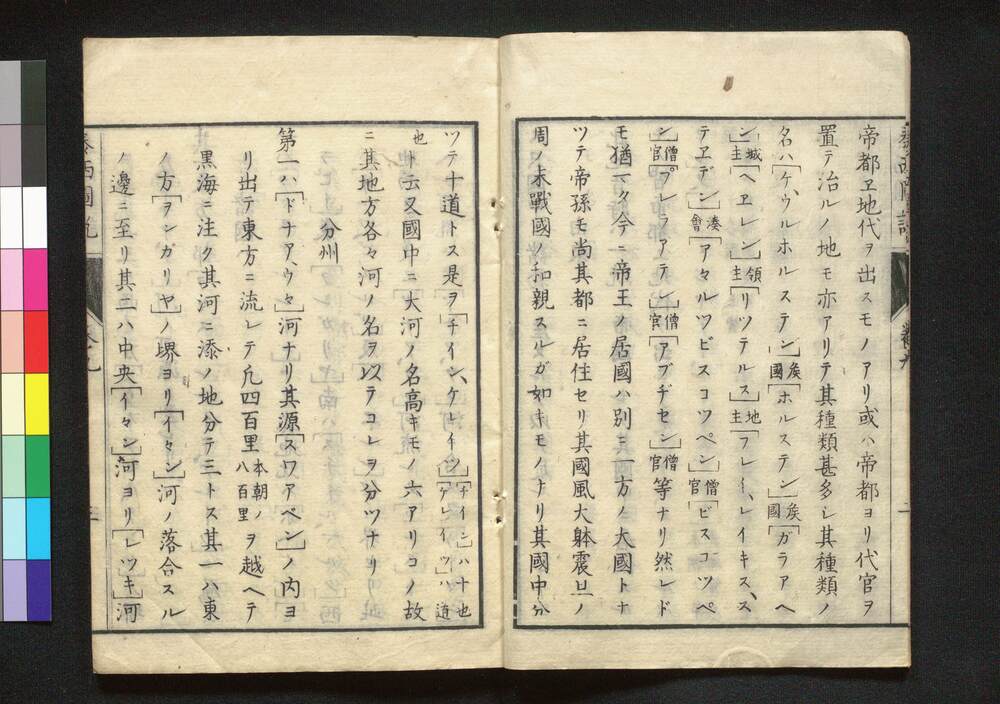 帝都ヱ地代ヲ出スモノアリ或ハ帝都ヨリ代官ヲ
置テ治ルノ地モ亦アリテ其種類甚多シ其種類ノ
名ハ「ケ、ウルホルステン」侯國「ホルステン」侯國「ガラアヘ
ン」城主「ヘヱレン」領主「リツテルス」地主「フレイ、レイキス、ス
テヱデン」湊會「アヽルツビスコツペン」僧官「ビスコツペ
ン」僧官「プレラアテレ」僧官「アブヂセン」僧官等ナリ然レド
モ猶一タ今ニ帝王ノ居國ハ別ニ一方ノ大國トナ
ツテ帝孫モ尚其都ニ居住セリ其國風大躰震旦ノ
周ノ末戰國ノ和親スルガ如キモノナリ其國中分
ツテ十道トス是ヲ「チイン、ケレイツ」「チイン」ハ十也「ケレイツ」ハ道
也ト云又國中ニ大河ノ名高キモノ六アリコノ故
ニ其地方各々河ノ名ヲ以テコレヲ分ツナリ
分州
第一ハ「ドナア、ウ」河ナリ其源「スワアベン」ノ内ヨ
リ出テ東方ニ流レテ凡四百里本朝ノ八百里ヲ越ヘテ
黒海ニ注ク其河ニ添ノ地分テ三トス其一ハ東
ノ方「ヲンガリヤ」ノ堺ヨリ「イヽン」河ノ落合スル
ノ邊ニ至リ其二ハ中央「イヽン」河ヨリ「レツキ」河
泰西圖説